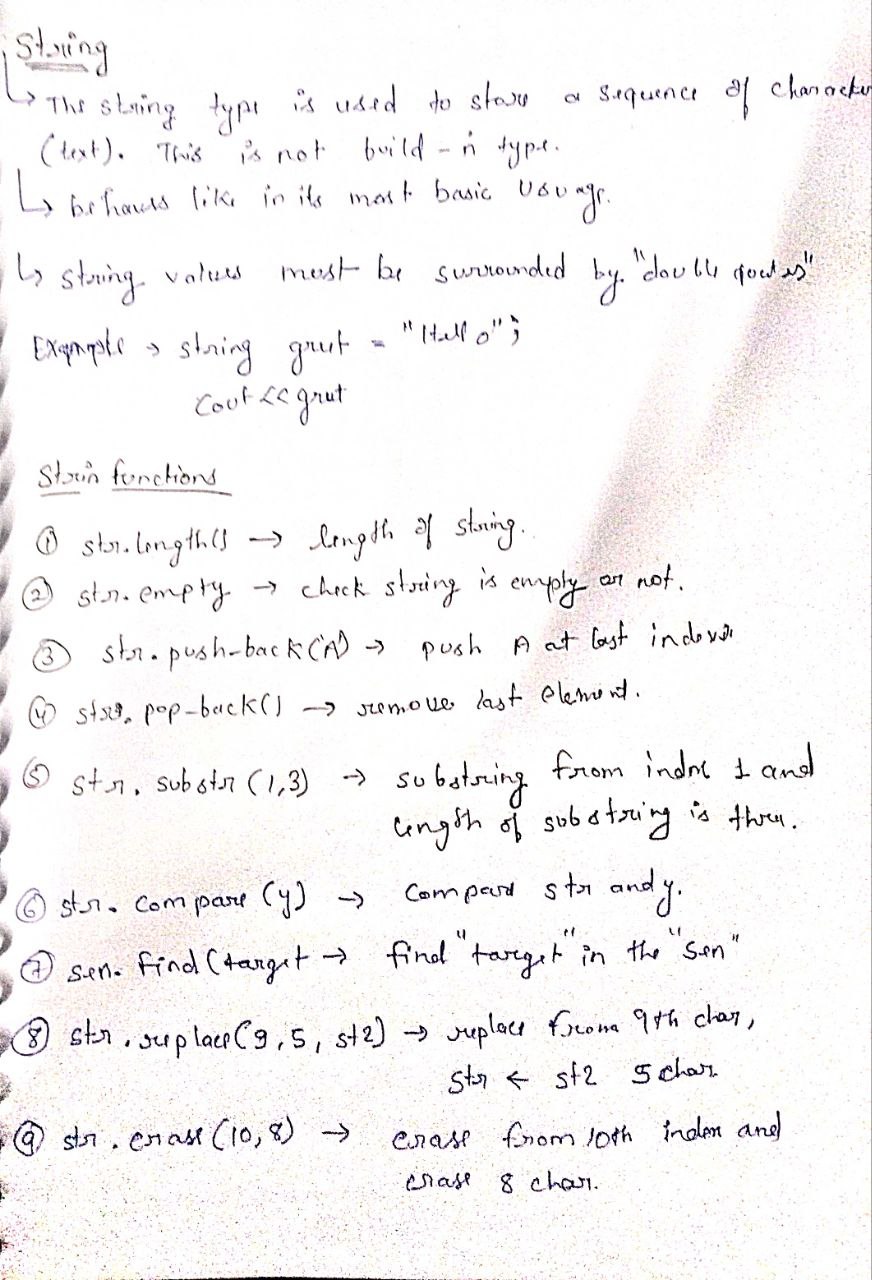 String
↳ The string type is used to store a sequence of character
(text). This is not build-in type.
↳ behaves like in its most basic usuage.
↳ string values most be surrounded by. "double qoutes"
Example → string greet = "Hello";
cout << greet
Strin functions
① str.length() → length of string.
② str.empty → check string is empty or not.
③ str.push-back('A') → push A at last index
④ str.pop-back() → remove last element.
⑤ str.substr(1,3) → substring from index 1 and
length of substring is three.
⑥ str.compare(y) → compare str and y.
⑦ sen.find(target → find "target" in the "sen"
⑧ str.replace(9,5,st2) → replace from 9th char,
str ← st2 5 char
⑨ str.erase(10,8) → erase from 10th index and
erase 8 char.